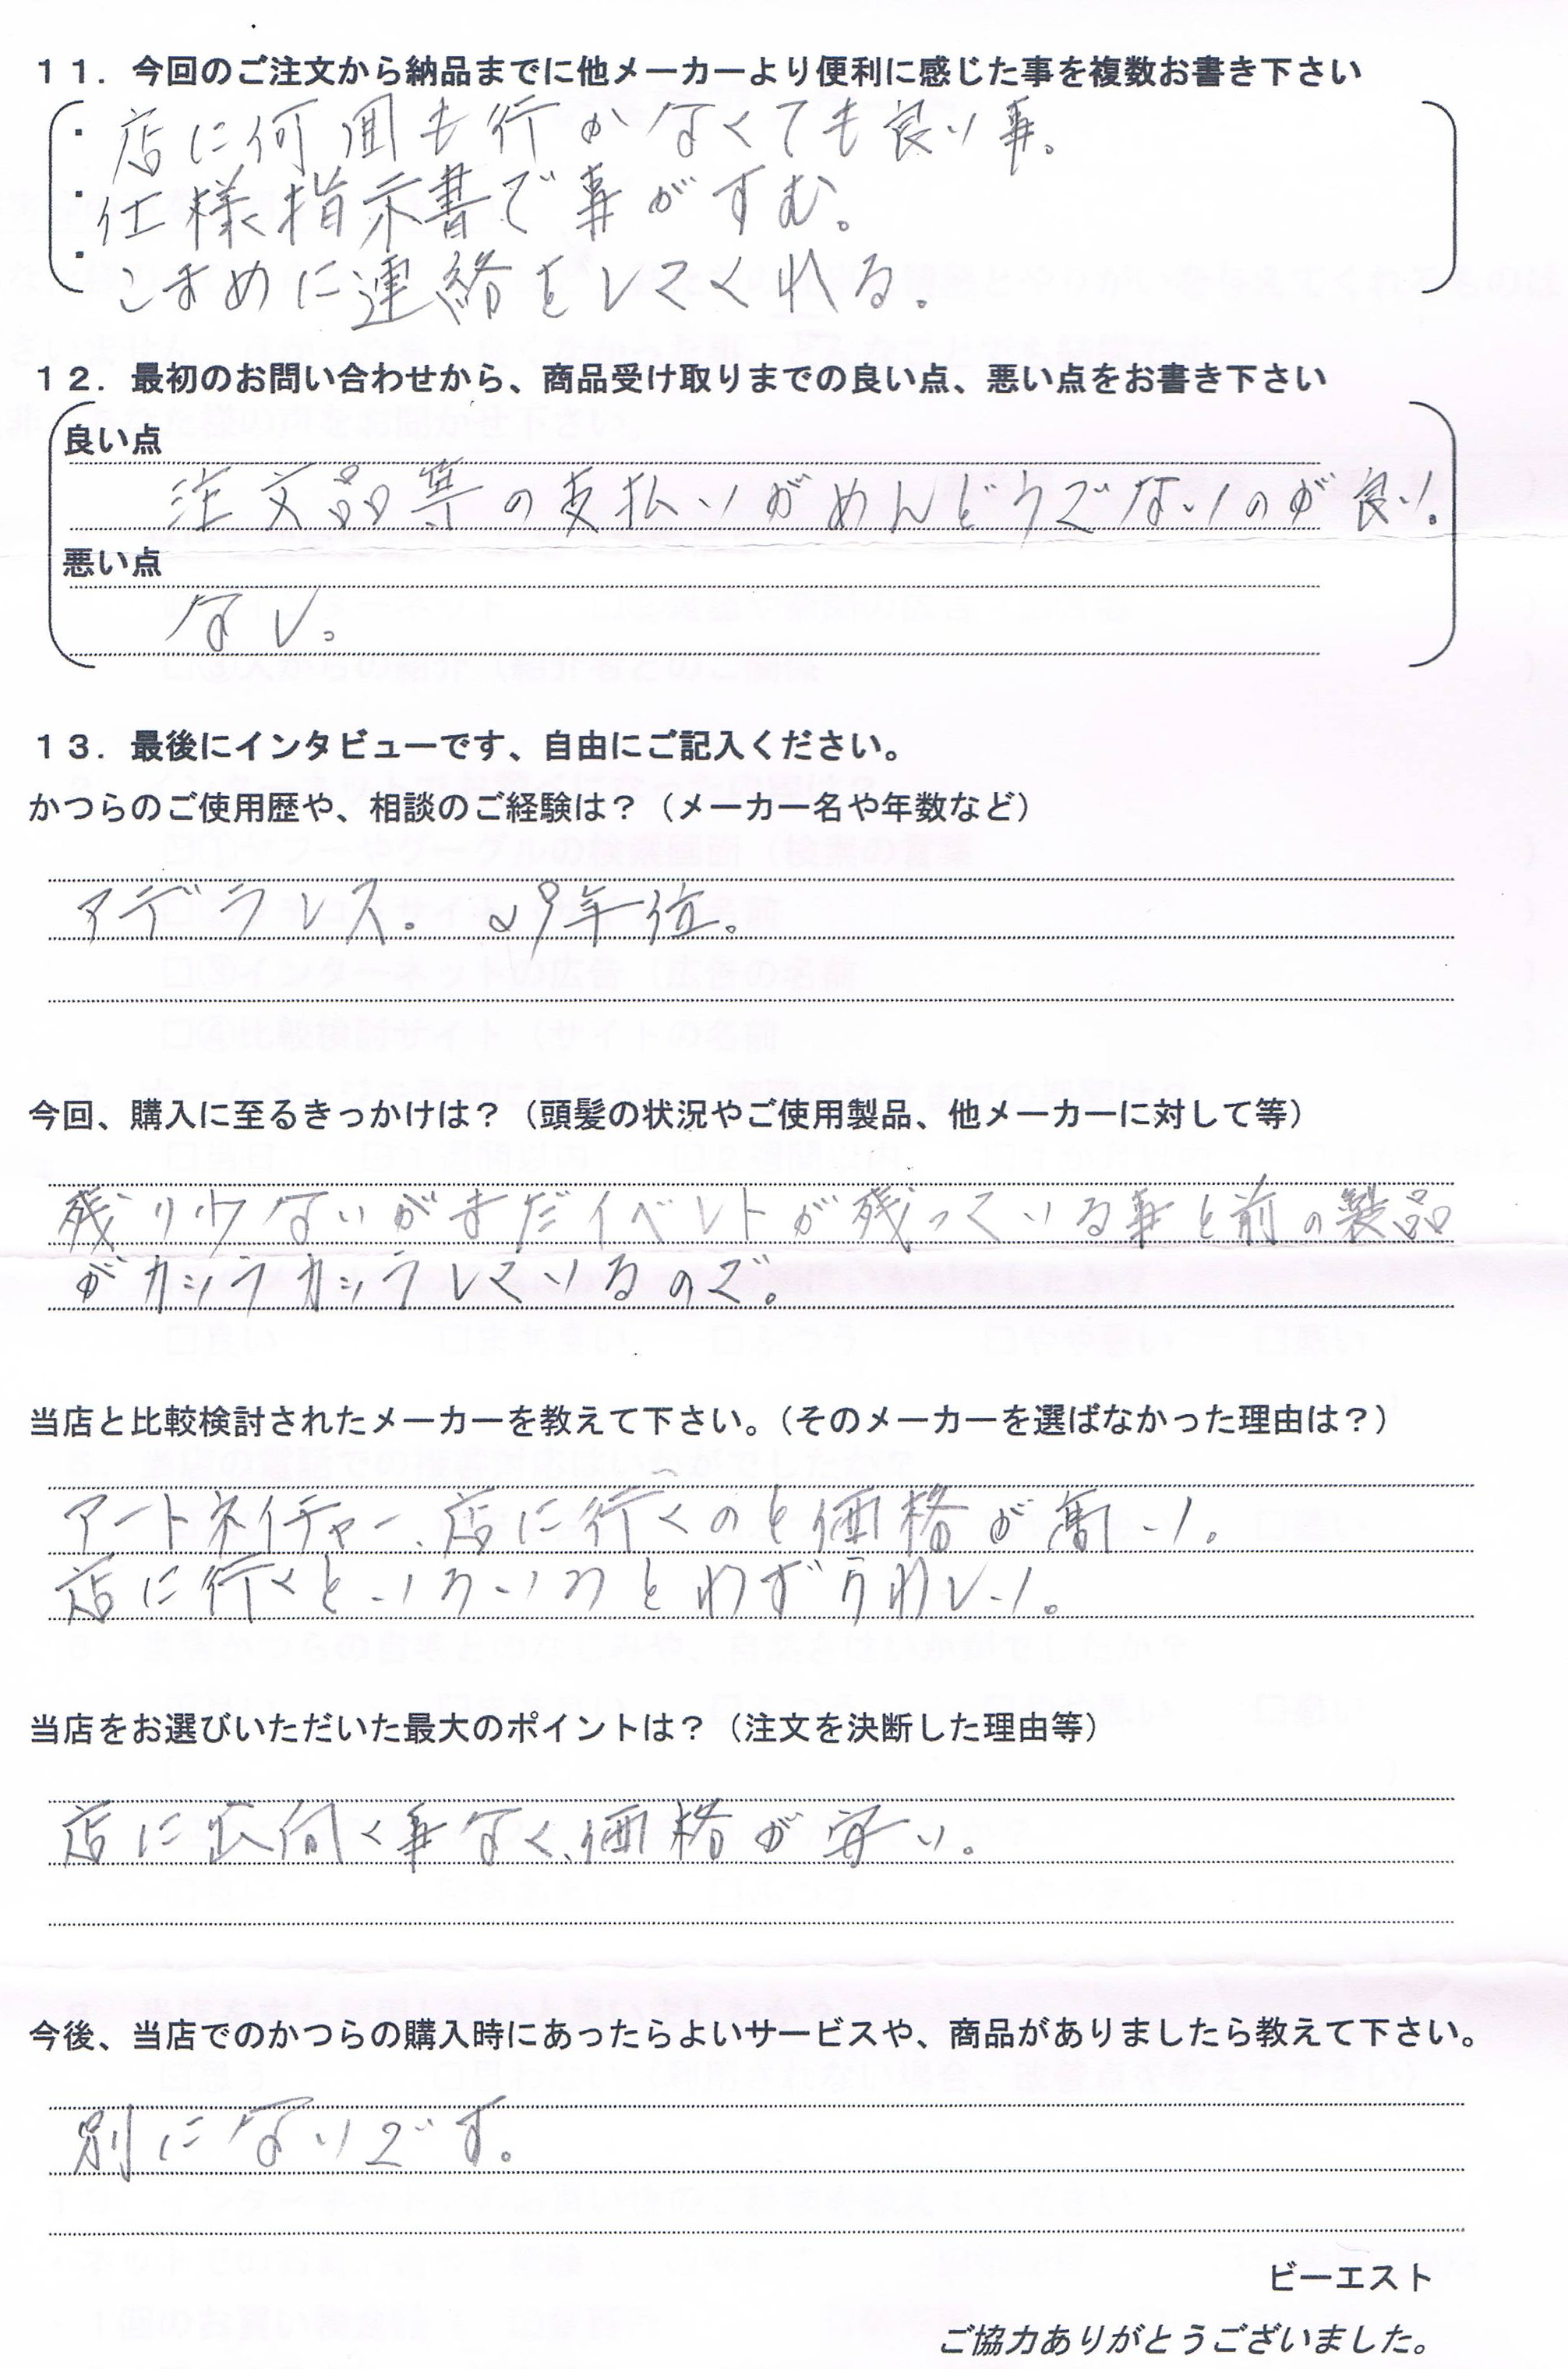 １１．今回のご注文から納品までに他メーカーより便利に感じた事を複数お書き下さい
・店に何回も行かなくても良い事。
・仕様指示書で事がすむ。
・こまめに連絡をしてくれる。
１２．最初のお問い合わせから、商品受け取りまでの良い点、悪い点をお書き下さい
良い点
注文品等の支払いがめんどうでないのが良い。
悪い点
なし。
１３．最後にインタビューです、自由にご記入ください。
かつらのご使用歴や、相談のご経験は？（メーカー名や年数など）
アデランス. 29年位。
今回、購入に至るきっかけは？（頭髪の状況やご使用製品、他メーカーに対して等）
残り少ないがまだイベントが残っている事と前の製品
がカツラカツラしているので。
当店と比較検討されたメーカーを教えて下さい。（そのメーカーを選ばなかった理由は？）
アートネイチャー、店に行くのと価格が高い。
店に行くといろいろとわずらわしい。
当店をお選びいただいた最大のポイントは？（注文を決断した理由等）
店に出向く事なく、価格が安い。
今後、当店でのかつらの購入時にあったらよいサービスや、商品がありましたら教えて下さい。
別にないです。
ビーエスト
ご協力ありがとうございました。